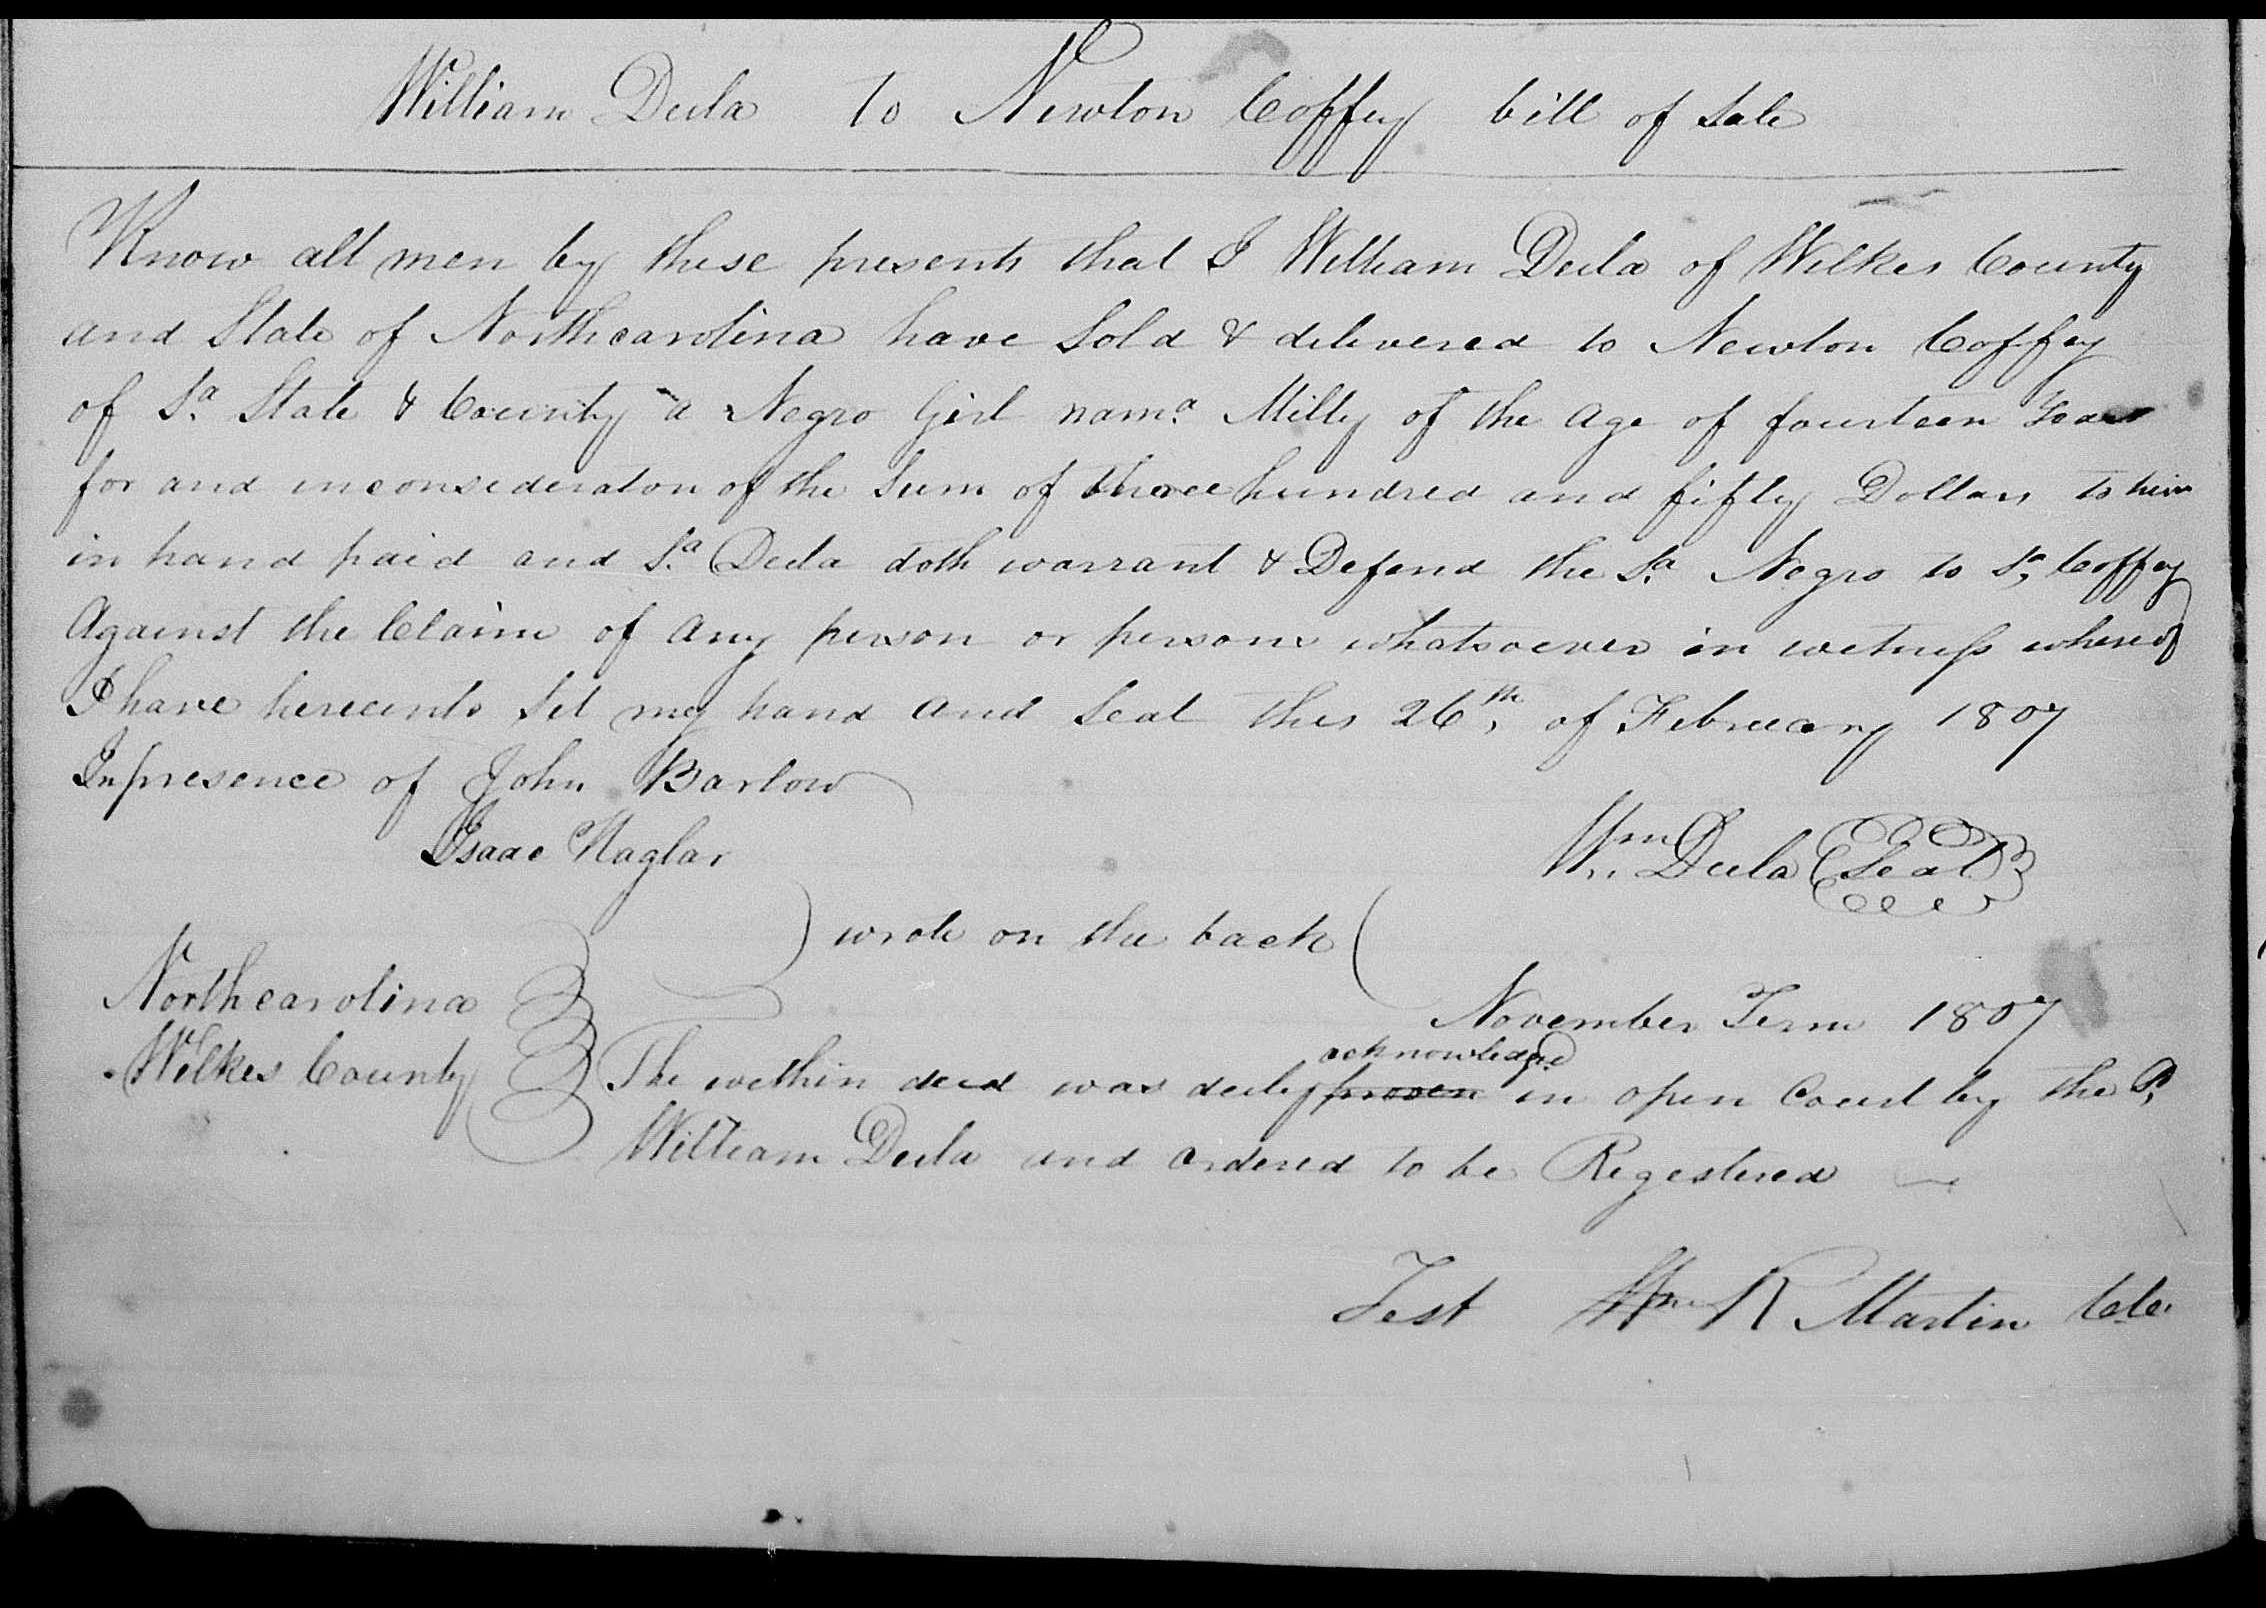 William Dula To Newton Coffey bill of Sale
Know all men by these presents that I William Dula of Wilkes County
and State of Northcarolina have Sold & delivered to Newton Coffey
of Sd. State & County a Negro Girl namd. Milly of the age of fourteen Years
for and inconsideraton of the Sum of three hundred and fifty Dollars to him
in hand paid and Sd. Dula doth warrant & Defend the Sd. Negro to Sd. Coffey
Against the Claim of any person or persons whatsoever in witness whereof
I have hereunto Set my hand and Seal this 26th. of February 1807
Inpresence of John Barlow
Isaac Haglar
Wm. Dula (Seal)
) wrote on the back (
Northcarolina
November Term 1807
Wilkes County
acknowledgd.
The within deed was duly proven in open Court by the Sd.
William Dula and ordered to be Regestered
Test Wm R Martin Clk